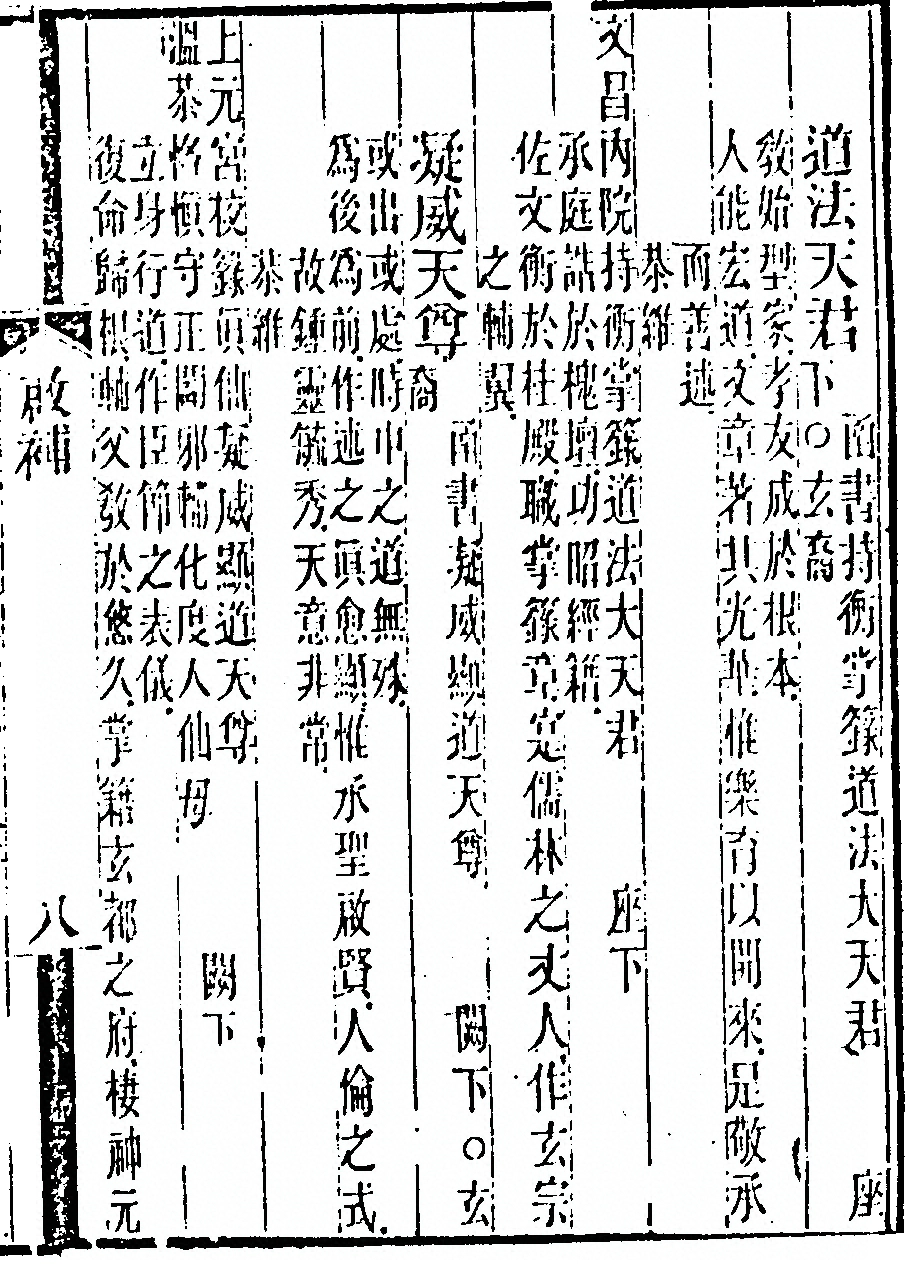 道法天君 函書持衡掌籙道法大天君 座
下○玄裔
敎始型家孝友成於根本
人能宏道文章著其光華惟樂育以開來是敬承
而善述
恭維
文昌內院持衡掌籙道法大天君 座下
承庭誥於槐壇功昭經籍
佐文衡於桂殿職掌籙章寔儒林之丈人作玄宗
之輔翼
凝威天尊 函書凝威顯道天尊 闕下○玄
裔
或出或處時中之道無殊
為後為前作述之眞愈顯惟承聖啟賢人倫之式
故鍾靈毓秀天意非常
恭維
上元宮校籙眞仙凝威顯道天尊
溫恭恪愼守正闢邪輔化度人仙母 闕下
立身行道作臣節之表儀
復命歸根輔父敎於悠久掌籍玄都之府棲神元
啟補
八